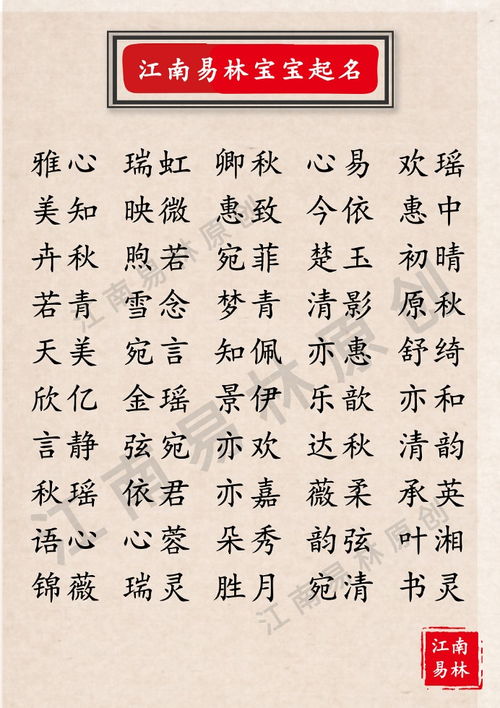 江南易林宝宝起名
雅心 瑞虹 卿秋 心易 欢瑶
美知 映微 惠致 今依 惠中
卉秋 煦若 宛菲 楚玉 初晴
若青 雪念 梦青 清影 原秋
天美 宛言 知佩 亦惠 舒绮
欣亿 金瑶 景伊 乐歆 亦和
言静 弦宛 亦欢 达秋 清韵
秋瑶 依君 亦嘉 薇柔 承英
语心 心蓉 朵秀 韵弦 叶湘
锦薇 瑞灵 胜月 宛清 书灵
江南易林原创
江南易林原创
江南易林原创
江南
易林